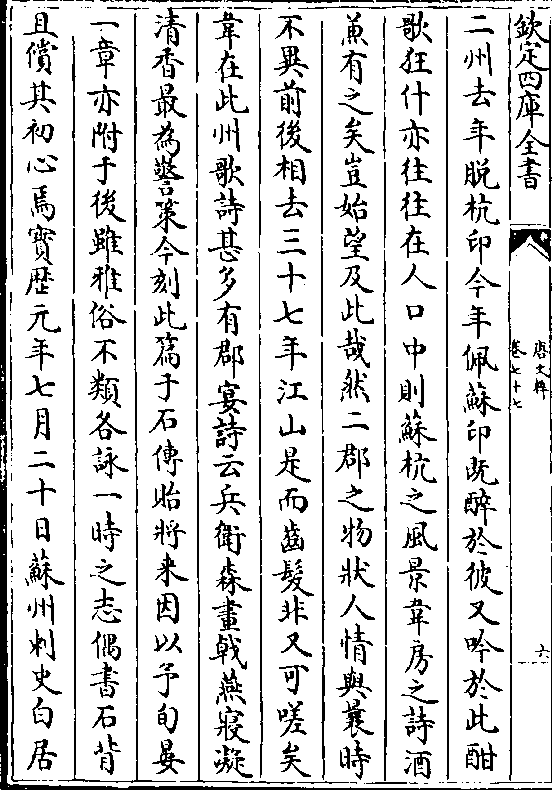 欽定四庫全書
唐文粹
卷七十七
六
二州去年脱杭印今年佩蘇印既醉於彼又吟於此酣
歌狂什亦往往在人口中則蘇杭之風景韋房之詩酒
兼有之矣豈始望及此哉然二郡之物狀人情與曩時
不異前後相去三十七年江山是而齒髮非又可嗟矣
韋在此州歌詩甚多有郡宴詩云兵衛森畫戟燕寢凝
清香最為警策今刻此篇于石傳貽將来因以予旬宴
一章亦附于後雖雅俗不類各詠一時之志偶書石背
且償其初心焉寶歴元年七月二十日蘇州刺史白居